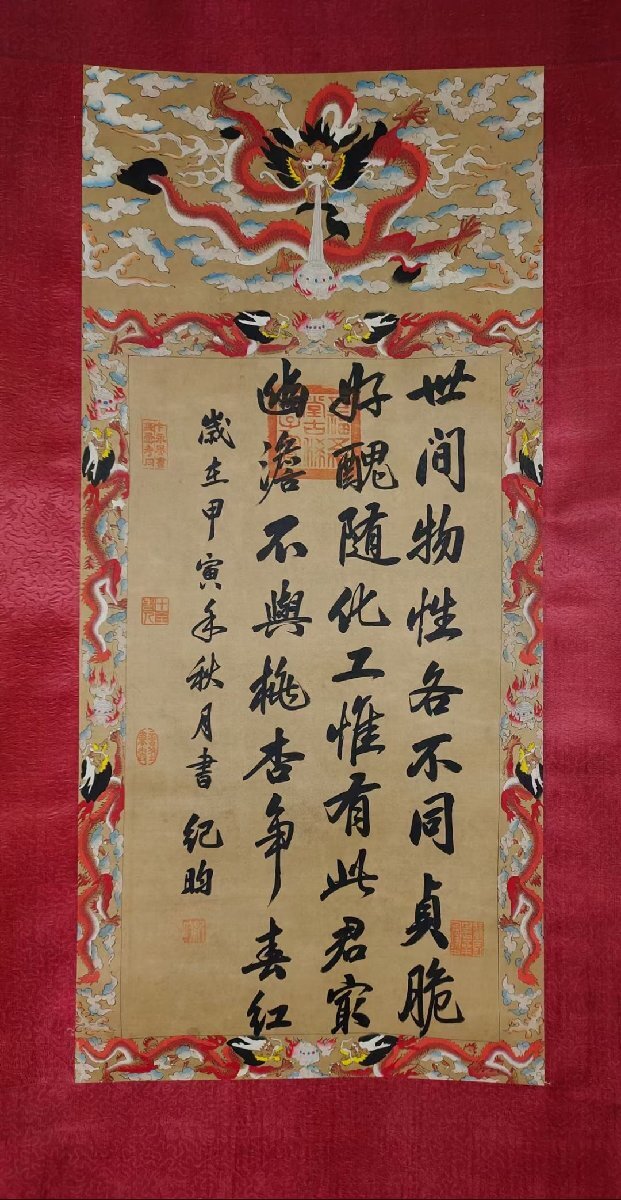 世间物性各不同貞脆
好醜随化工惟有此君寂
幽澹不與桃杏争春红
歳在甲寅年秋月書
纪昀